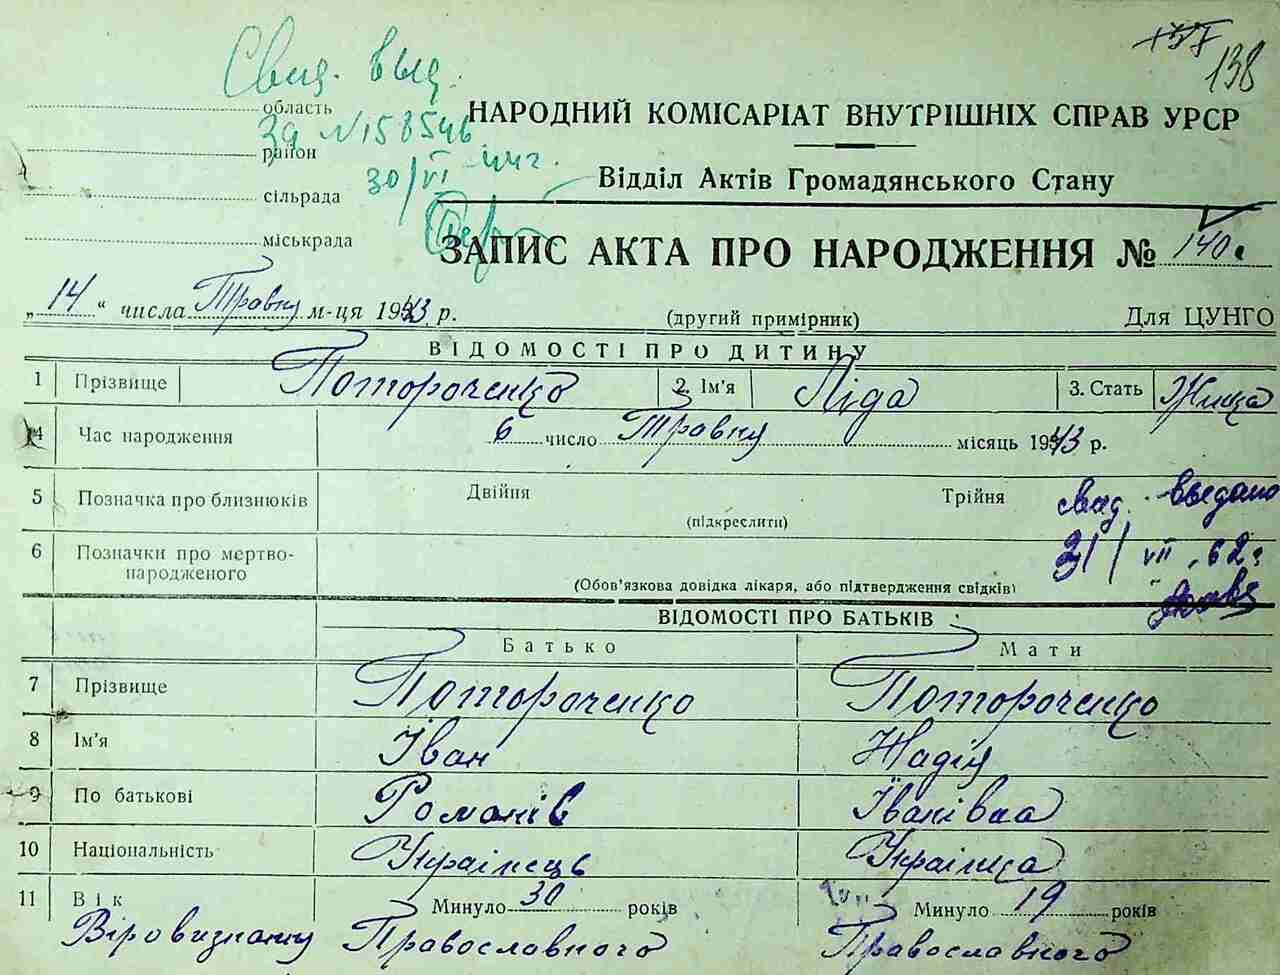 137
138
Свид. выд.
область
НАРОДНИЙ КОМІСАРІАТ ВНУТРІШНІХ СПРАВ УРСР
№158546
район
30/VI 44г.
Відділ Актів Громадянського Стану
сільрада
міськрада
ЗАПИС АКТА ПРО НАРОДЖЕННЯ № 140
„14“ числа Травня м-ця 1943 р.
(другий примірник)
Для ЦУНГО
ВІДОМОСТІ ПРО ДИТИНУ
1 Прізвище Потороченко 2. Ім'я Ліда 3. Стать Жінка
4 Час народження 6 число Травня місяць 1943 р.
5 Позначка про близнюків Двійня Трійня
(підкреслити)
свид. выдано
31/VII.62г
6 Позначки про мертво-
народженого
(Обов'язкова довідка лікаря, або підтвердження свідків)
ВІДОМОСТІ ПРО БАТЬКІВ
Батько Мати
7 Прізвище Потороченко Потороченко
8 Ім'я Іван Надія
9 По батькові Романів Іванівна
10 Національність Українець Українка
11 Вік Минуло 30 років Минуло 19 років
Віровизнання Православного Православного